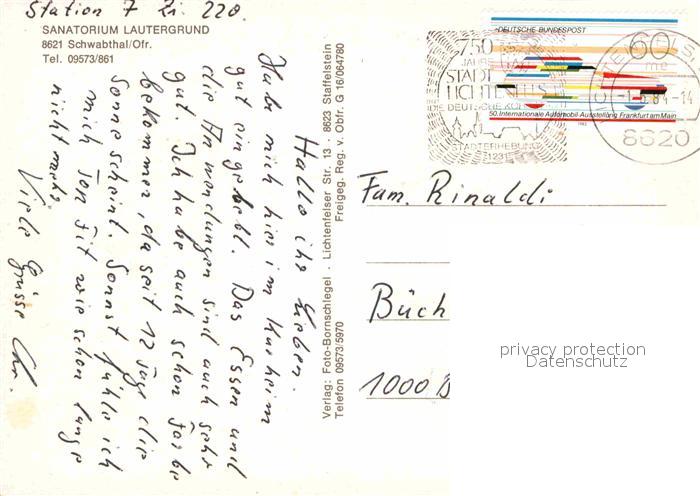 Station 7 Zi. 220.
SANATORIUM LAUTERGRUND
8621 Schwabthal/Ofr.
Tel. 09573/861
Hallo ihr Lieben.
Habe mich hier im Kurheim
gut eingelebt. Das Essen und
die Anwendungen sind auch sehr
gut. Ich habe auch schon Farbe
bekommen, da seit 12 Tage die
Sonne scheint. Sonst fühle ich
mich so fit wie schon lange
nicht mehr.
Viele Grüsse
Verlag: Foto-Bornschlegel · Lichtenfelser Str. 13 · 8623 Staffelstein
Telefon 09573/5970 Freigeg. Reg. v. Obfr. G 16/064780
DEUTSCHE BUNDESPOST
60
50. Internationale Automobil-Ausstellung Frankfurt am Main
1983
750
JAHRE
STADT
LICHTENFELS
DIE DEUTSCHE
STADTERHEBUNG
1231
-1.6.84-14
8620
Fam. Rinaldi
Büch
1000 B
privacy protection
Datenschutz